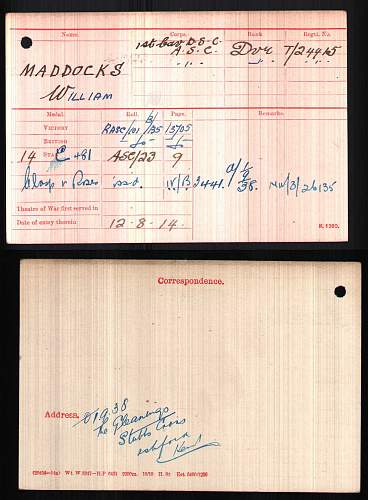 Name. Corps. Rank Regtl. No.
1st Cav D.S.C.
A.S.C. Dvr T/24415
MADDOCKS " "
William
Medal. Roll. Page. Remarks.
VICTORY RASC/101 B/35 13705
BRITISH -do- -do-
14 STAR C +81 ASC/23 9
Clasp & Roses issd. IV/B 3441. d/ 38. NW/3/26135
Theatre of War first served in
Date of entry therein 12-8-14.
K. 1380.
Correspondence.
Address. 19.38
The Gleanings
Stubbs Cross
Ashford
Kent